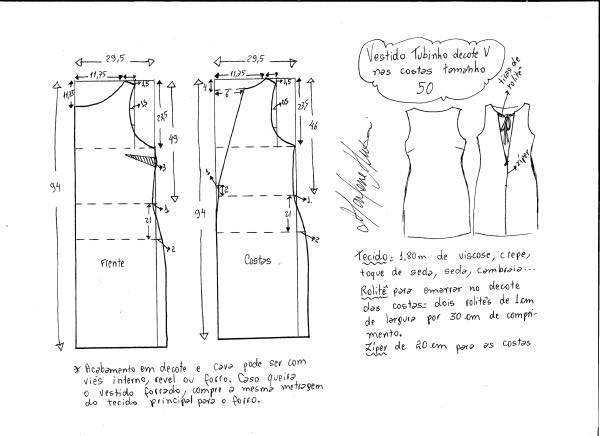 29,5
11,75
1,5
11,25
1,5
23,5
49
3
94
1
21
2
Frente
29,5
11,75
1,5
4
6
0,5
23,5
46
3
2
94
1
21
2
Costas
Vestido Tubinho decote V
nas costas tamanho
50
tiras de
rolitê
zíper
Marlene Mukai
Tecido: 1,80m de viscose, crepe,
toque de seda, seda, cambraia...
Rolitê para amarrar no decote
das costas: dois rolitês de 1cm
de largura por 30 cm de compri-
mento.
Zíper de 20 cm para as costas
* Acabamento em decote e cava pode ser com
viés interno, revel ou forro. Caso queira
o vestido forrado, compre a mesma metragem
do tecido principal para o forro.